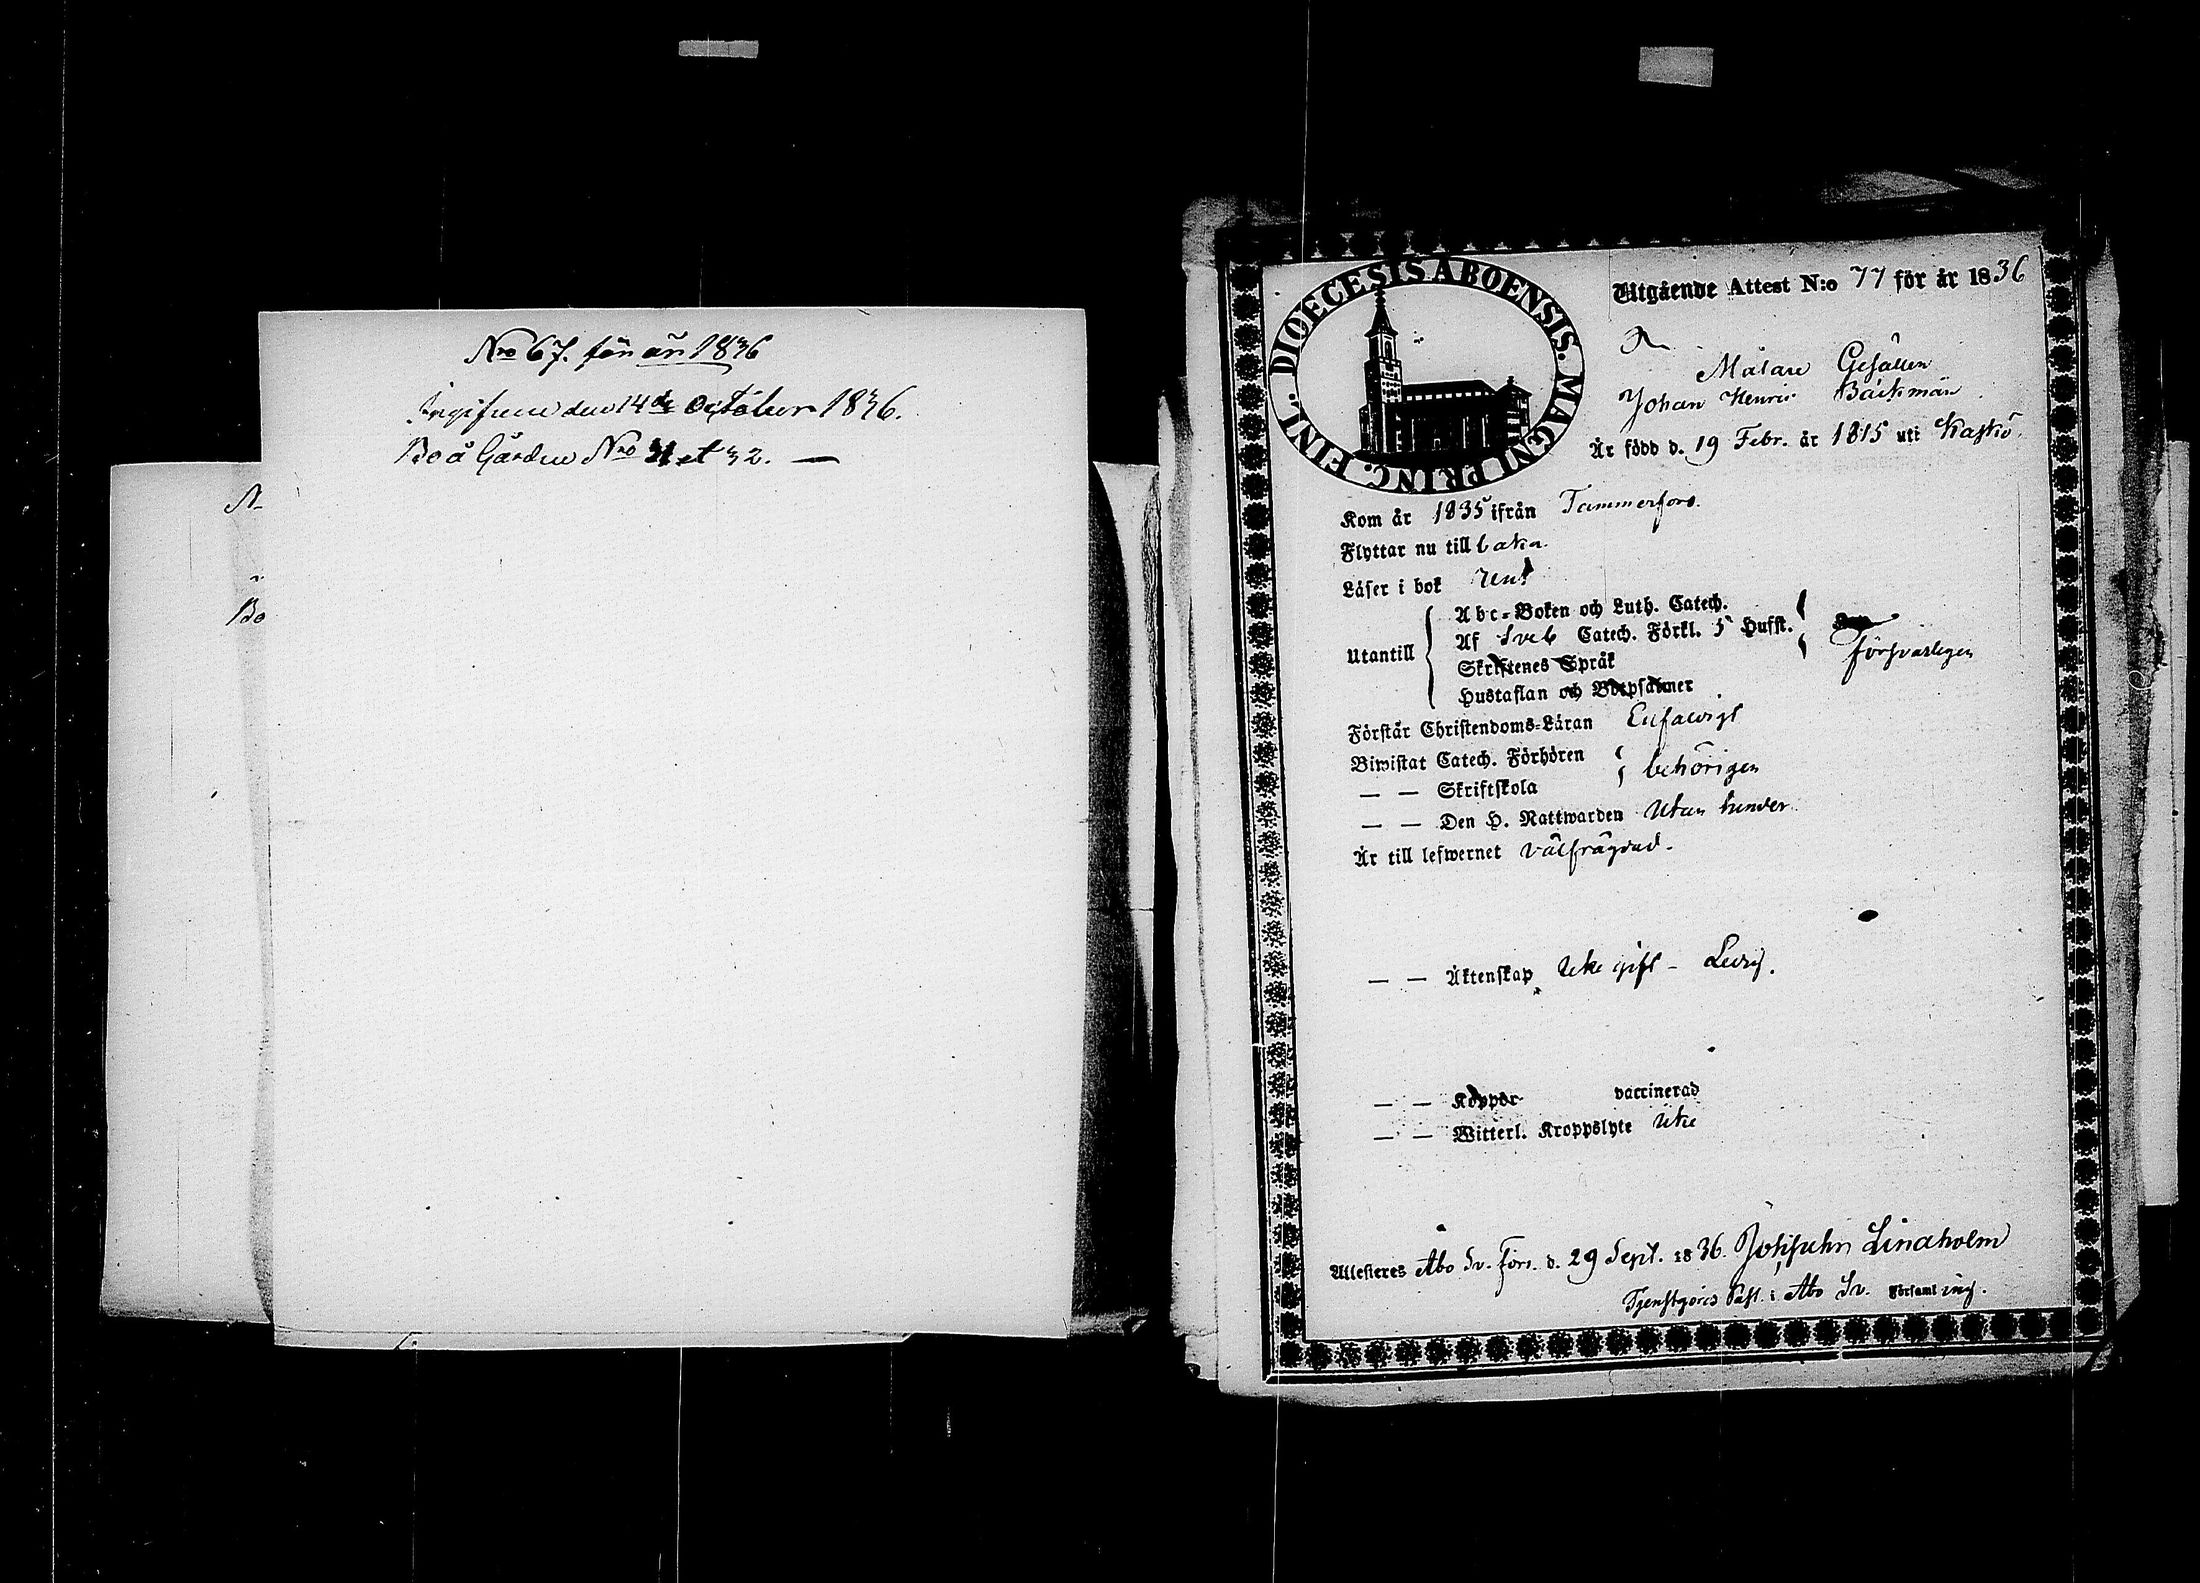 Nro 67. för år 1836
Ingifven den 14de October 1836.
Bo å Gården Nro 31 et 32. —
N
Bo
DIOECESIS ABOENSIS. MAGNI PRINC. FINL.
Utgående Attest N:o 77 för år 1836
Målare Gesällen
Johan Henric Bäckman
Är född d. 19 Febr. år 1815 uti Kaskö.
Kom år 1835 ifrån Tammerfors.
Flyttar nu till baka.
Läser i bok rent
Utantill
Abc-Boken och Luth. Catech.
Af Sveb Catech. Förkl. 5 Hufst.
Skriftenes Språk
Hustaflan och Botpsalmer
Försvarligen
Förstår Christendoms-Läran Enfaldigt
Biwistat Catech. Förhören
behörigen
— — Skriftskola
— — Den H. Nattwarden Utan hinder
Är till lefwernet välfrägdad.
— — Äktenskap Icke gift - Ledig.
— — Koppor vaccinerad
— — Witterl. Kroppslyte Icke
Attesteras Åbo Sv. Förs. d. 29 Sept. 1836. Lindholm
Tjenstgörs Past. i Åbo Sv. Församling.